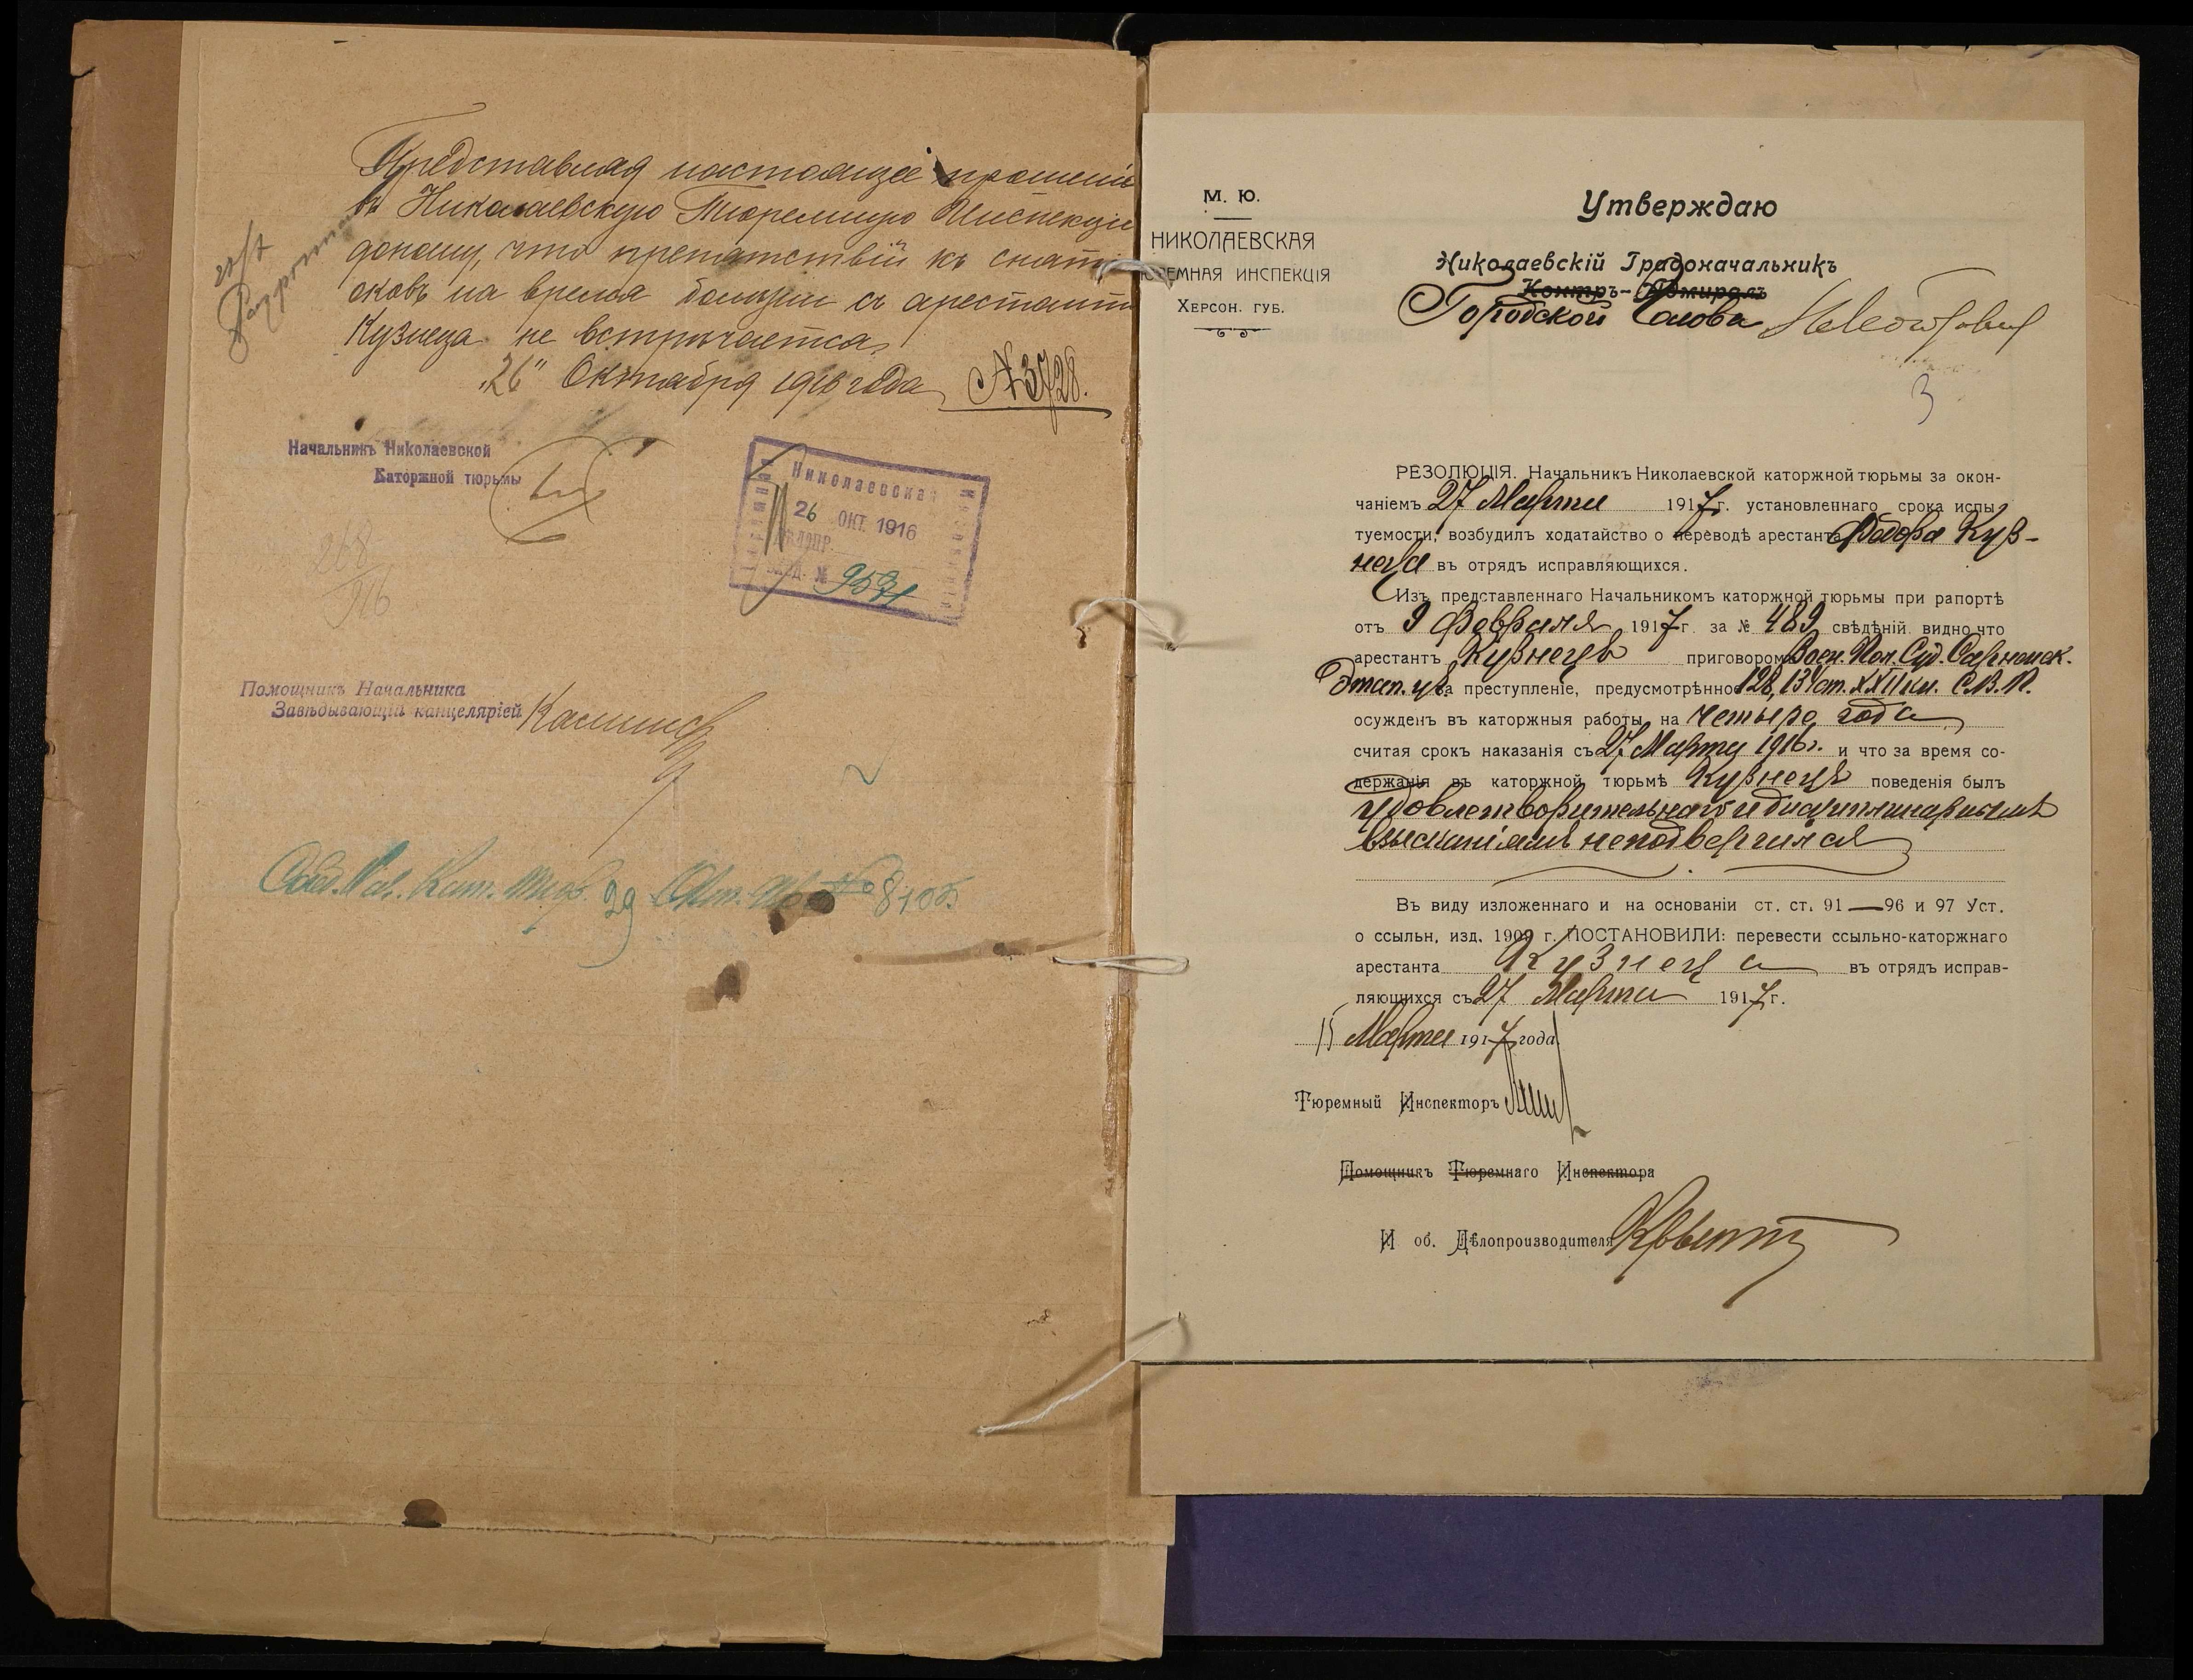 Представляя настоящее прошеніе
въ Николаевскую Тюремную Инспекцію
доношу, что препятствій къ снятію
оковъ на время болѣзни съ арестанта
Кузнеца не встрѣчается.
"26" Октября 1916 года № 3728.
Начальникъ Николаевской
Каторжной тюрьмы
Николаевская
26 ОКТ. 1916
№ 9531
268
916
Помощникъ Начальника
Завѣдывающій канцеляріей
Нач. Кат. тюр. 29 Окт. 916 № 8105
М. Ю.
НИКОЛАЕВСКАЯ
РЕМНАЯ ИНСПЕКЦІЯ
ХЕРСОН. ГУБ.
Утверждаю
Николаевскій Градоначальникъ
Контръ-Адмиралъ
Городской Голова
3
РЕЗОЛЮЦІЯ. Начальникъ Николаевской каторжной тюрьмы за окон-
чаніемъ 27 Марта 1917 г. установленнаго срока испы-
туемости, возбудилъ ходатайство о переводѣ арестанта Федора Куз-
неца въ отрядъ исправляющихся.
Изъ представленнаго Начальникомъ каторжной тюрьмы при рапортѣ
отъ 9 Февраля 1917 г. за № 489 свѣдѣній видно что
арестантъ Кузнецъ приговоромъ Воен. Пол. Суд.
Этап. за преступленіе, предусмотрѣнное 128, 131 ст. XXII кн. С.В.П.
осужденъ въ каторжныя работы на четыре года
считая срокъ наказанія съ 27 Марта 1916 г. и что за время со-
держанія въ каторжной тюрьмѣ Кузнецъ поведенія былъ
удовлетворительнаго и дисциплинарнымъ
взысканіямъ неподвергался
Въ виду изложеннаго и на основаніи ст. ст. 91—96 и 97 Уст.
о ссыльн. изд. 1909 г. ПОСТАНОВИЛИ: перевести ссыльно-каторжнаго
арестанта Кузнеца въ отрядъ исправ-
ляющихся съ 27 Марта 1917 г.
15 Марта 1917 года
Тюремный Инспекторъ
Помощникъ Тюремнаго Инспектора
И об. Дѣлопроизводителя